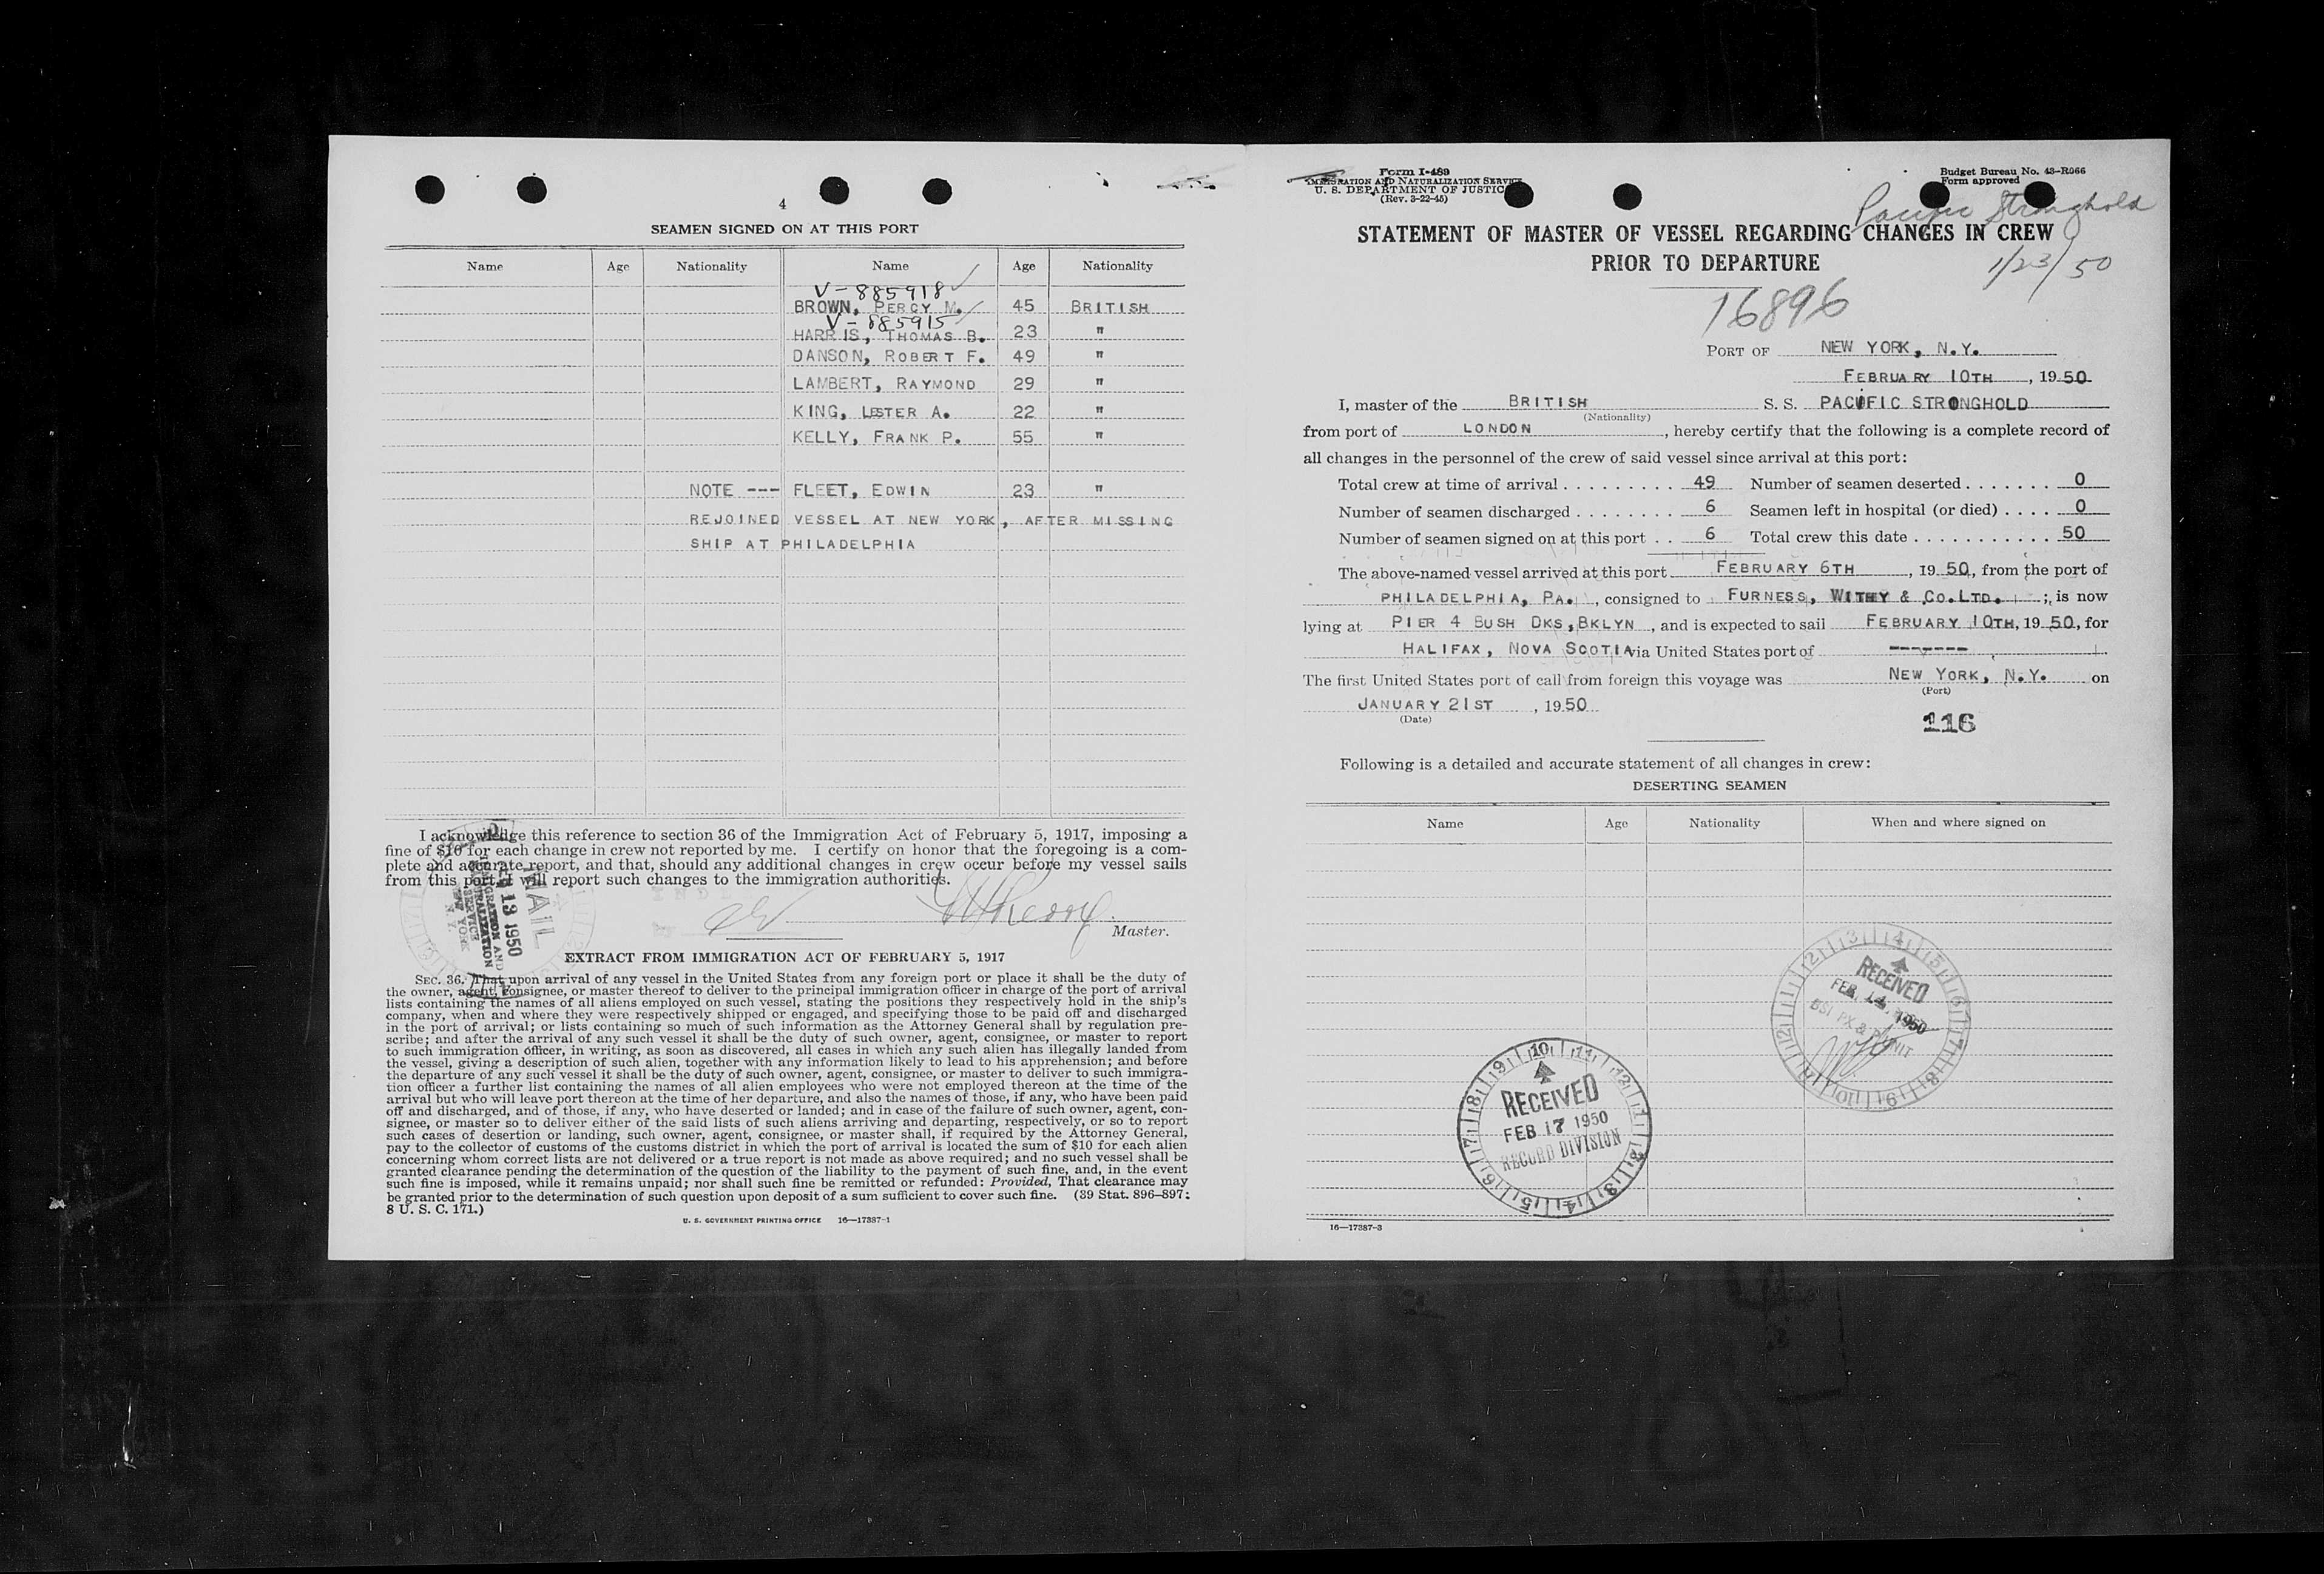 4
SEAMEN SIGNED ON AT THIS PORT
Name Age Nationality Name Age Nationality
V-885918
BROWN, PERCY M. 45 BRITISH
V-885915
HARRIS, THOMAS B. 23 "
DANSON, ROBERT F. 49 "
LAMBERT, RAYMOND 29 "
KING, LESTER A. 22 "
KELLY, FRANK P. 55 "
NOTE --- FLEET, EDWIN 23 "
REJOINED VESSEL AT NEW YORK, AFTER MISSING
SHIP AT PHILADELPHIA
I acknowledge this reference to section 36 of the Immigration Act of February 5, 1917, imposing a
fine of $10 for each change in crew not reported by me. I certify on honor that the foregoing is a com-
plete and accurate report, and that, should any additional changes in crew occur before my vessel sails
from this port, I will report such changes to the immigration authorities.
Master.
MAIL
13 1950
IMMIGRATION AND
NATURALIZATION
SERVICE
NEW YORK
N.Y.
EXTRACT FROM IMMIGRATION ACT OF FEBRUARY 5, 1917
SEC. 36. That upon arrival of any vessel in the United States from any foreign port or place it shall be the duty of
the owner, agent, consignee, or master thereof to deliver to the principal immigration officer in charge of the port of arrival
lists containing the names of all aliens employed on such vessel, stating the positions they respectively hold in the ship's
company, when and where they were respectively shipped or engaged, and specifying those to be paid off and discharged
in the port of arrival; or lists containing so much of such information as the Attorney General shall by regulation pre-
scribe; and after the arrival of any such vessel it shall be the duty of such owner, agent, consignee, or master to report
to such immigration officer, in writing, as soon as discovered, all cases in which any such alien has illegally landed from
the vessel, giving a description of such alien, together with any information likely to lead to his apprehension; and before
the departure of any such vessel it shall be the duty of such owner, agent, consignee, or master to deliver to such immigra-
tion officer a further list containing the names of all alien employees who were not employed thereon at the time of the
arrival but who will leave port thereon at the time of her departure, and also the names of those, if any, who have been paid
off and discharged, and of those, if any, who have deserted or landed; and in case of the failure of such owner, agent, con-
signee, or master so to deliver either of the said lists of such aliens arriving and departing, respectively, or so to report
such cases of desertion or landing, such owner, agent, consignee, or master shall, if required by the Attorney General,
pay to the collector of customs of the customs district in which the port of arrival is located the sum of $10 for each alien
concerning whom correct lists are not delivered or a true report is not made as above required; and no such vessel shall be
granted clearance pending the determination of the question of the liability to the payment of such fine, and, in the event
such fine is imposed, while it remains unpaid; nor shall such fine be remitted or refunded: Provided, That clearance may
be granted prior to the determination of such question upon deposit of a sum sufficient to cover such fine. (39 Stat. 896-897;
8 U. S. C. 171.)
U. S. GOVERNMENT PRINTING OFFICE 16—17387-1
Form I-489
IMMIGRATION AND NATURALIZATION SERVICE
U. S. DEPARTMENT OF JUSTICE
(Rev. 3-22-45)
Budget Bureau No. 43-R066
Form approved
Pacific Stronghold
STATEMENT OF MASTER OF VESSEL REGARDING CHANGES IN CREW
PRIOR TO DEPARTURE
1/23/50
16896
PORT OF NEW YORK, N.Y.
FEBRUARY 10TH, 1950
I, master of the BRITISH S. S. PACIFIC STRONGHOLD
(Nationality)
from port of LONDON, hereby certify that the following is a complete record of
all changes in the personnel of the crew of said vessel since arrival at this port:
Total crew at time of arrival . . . . . . . . . 49 Number of seamen deserted . . . . . . . 0
Number of seamen discharged . . . . . . . . 6 Seamen left in hospital (or died) . . . . 0
Number of seamen signed on at this port . . 6 Total crew this date . . . . . . . . . . . 50
The above-named vessel arrived at this port FEBRUARY 6TH, 1950, from the port of
PHILADELPHIA, PA., consigned to FURNESS, WITHY & CO.LTD. ; is now
lying at PIER 4 BUSH DKS,BKLYN, and is expected to sail FEBRUARY 10TH, 1950, for
HALIFAX, NOVA SCOTIA via United States port of -------
The first United States port of call from foreign this voyage was NEW YORK, N.Y. on
(Port)
JANUARY 21ST, 1950
(Date)
116
Following is a detailed and accurate statement of all changes in crew:
DESERTING SEAMEN
Name Age Nationality When and where signed on
RECEIVED
FEB 14 1950
BSI PX & PERMIT
RECEIVED
FEB 17 1950
RECORD DIVISION
16—17387-3